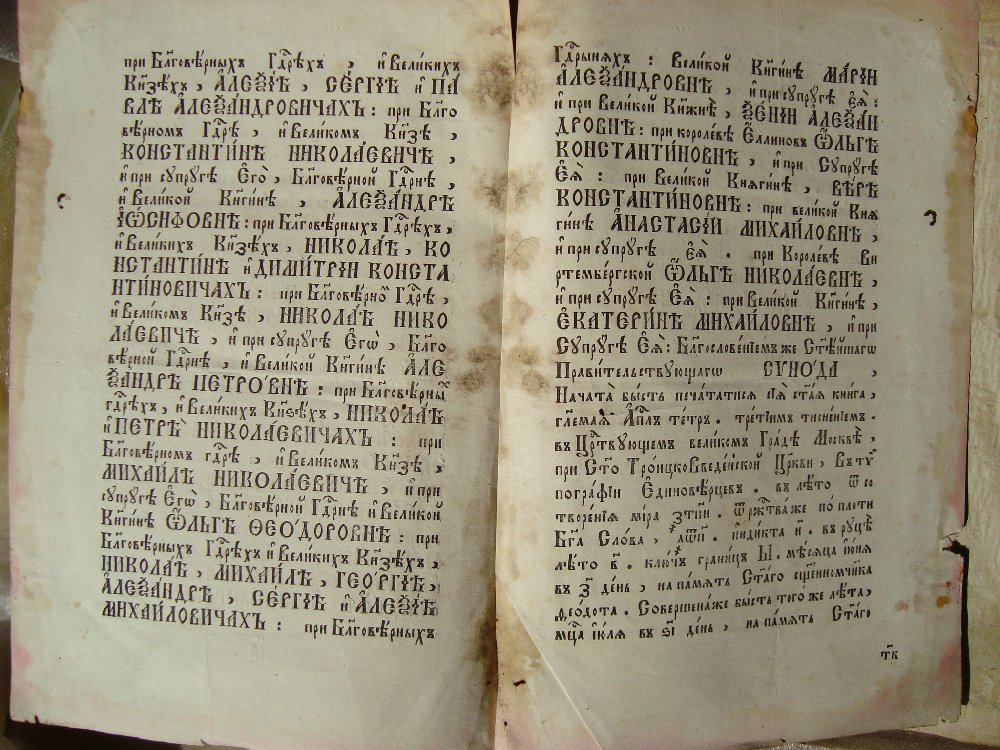 при Бл҃говѣрныхъ Гдⷭ҇рѣхъ , и҆ Великихъ
Кн҃зѣхъ , А҆ЛЕѮІ́Ѣ , СЕ́РГІѢ и҆ ПА́
ВЛѢ А҆ЛЕѮА́НДРОВИЧАХЪ : при Бл҃го
вѣрномъ Гдⷭ҇рѣ , и҆ Великомъ Кн҃зѣ ,
КОНСТАНТИ́НѢ НИКОЛА́ЕВИЧѢ ,
и҆ при супругѣ Е҆гѡ̀ , Бл҃говѣрной Гдⷭ҇рнѣ ,
и҆ Великой Кн҃гинѣ , А҆ЛЕѮА́НДРѢ
І҆ѠСИФОВНѢ : при Бл҃говѣрныхъ Гдⷭ҇рѣхъ ,
и҆ Великихъ Кн҃зѣхъ , НИКОЛА́Ѣ , КО
НСТАНТИ́НѢ и҆ ДИМИ́ТРІИ КОНСТА
НТИ́НОВИЧАХЪ : при Бл҃говѣрно Гдⷭ҇рѣ ,
и҆ Великомъ Кн҃зѣ , НИКОЛА́Ѣ НИКО
ЛА́ЕВИЧѢ , и҆ при супругѣ Е҆гѡ̀ , Бл҃го
вѣрной Гдⷭ҇рнѣ , и҆ Великой Кн҃гинѣ А҆ЛЕ
ѮА́НДРѢ ПЕТРО́ВНѢ : при Бл҃говѣрныⷯ
гдⷭ҇рѣхъ , и҆ Великихъ Кн҃ѕѣхъ , НИКОЛА́Ѣ
и҆ ПЕТРѢ̀ НИКОЛА́ЕВИЧАХЪ : при
Бл҃говѣрномъ гдⷭ҇рѣ , и҆ Великомъ Кн҃зѣ ,
МИХАИ́ЛѢ НИКОЛА́ЕВИЧѢ , и҆ при
супругѣ Е҆гѡ̀ , Бл҃говѣрной Гдⷭ҇рнѣ и҆ Великой
Кн҃гинѣ Ѻ҆́ЛЬГѢ ѲЕО́ДОРОВНѢ : при
Бл҃говѣрныхъ Гдⷭ҇рѣхъ и҆ Великихъ Кн҃зѣхъ ,
НИКОЛА́Ѣ , МИХАИ́ЛѢ , ГЕО́РГІѢ ,
А҆ЛЕѮА́НДРѢ , СЕ́РГІѢ и҆ А҆ЛЕѮІ́Ѣ
МИХАИ́ЛОВИЧАХЪ : при Бл҃говѣрныхъ
Гдⷭ҇рыняхъ : Великой Кн҃гинѣ МАРІ́И
А҆ЛЕѮА́НДРОВНѢ , и҆ при супругѣ Е҆Ѧ̀ :
и҆ при Великой Кн҃жнѣ , ѮЕ́НІИ А҆ЛЕѮАН
ДРОВНѢ : при королевѣ Е҆ллиновъ Ѻ҆́ЛЬГѢ
КОНСТАНТИ́НОВНѢ , и҆ при Супругѣ
Е҆Ѧ̀ : при Великой Княгинѣ , ВѢ́РѢ
КОНСТАНТИ́НОВНѢ : при великой Кня
гинѣ А҆НАСТАСІ́И МИХА́ЙЛОВНѢ ,
и҆ при супругѣ Е҆Ѧ̀ . при Королевѣ Ви
ртембергской Ѻ҆́ЛЬГѢ НИКОЛА́ЕВНѢ ,
и҆ при супругѣ Е҆Ѧ̀ : при Великой Кн҃гинѣ ,
Е҆КАТЕРИ́НѢ МИХАЙЛОВНѢ , и҆ при
Супругѣ Е҆Ѧ̀ : Благословеніемъ же Ст҃ѣйшагѡ
Прави́тельствующагѡ СѴНО́ДА ,
Нача́та бысть печа́татися сїѧ̀ ст҃ая книга ,
гл҃емая А҆пⷭ҇лъ те́тръ . третіимъ тисненіемъ .
въ Цр҃ствующемъ великомъ Градѣ Москвѣ ,
при Ст҃о Троицковведе́нской Цр҃кви , Въ ту
пографіи Е҆диновѣрцевъ . въ лѣто ѿ со
творе́нія міра ҂зт҃ч҃и . ѿ ржⷭ҇тва же по плоти
Бг҃а Слова , ҂аѡ҃п҃ . индикта и҃ . въ руцѣ
лѣто в҃ . ключъ границъ Ы . мѣсяца і҆ю́нѧ
въ з҃ день , на память Ст҃аго сщ҃енномчн҃ка
Ѳеодота . Совершена же бысть того же лѣта ,
мцⷭ҇а і҆ю́лѧ въ ѕі҃ день , на память Ст҃аго
т҃к